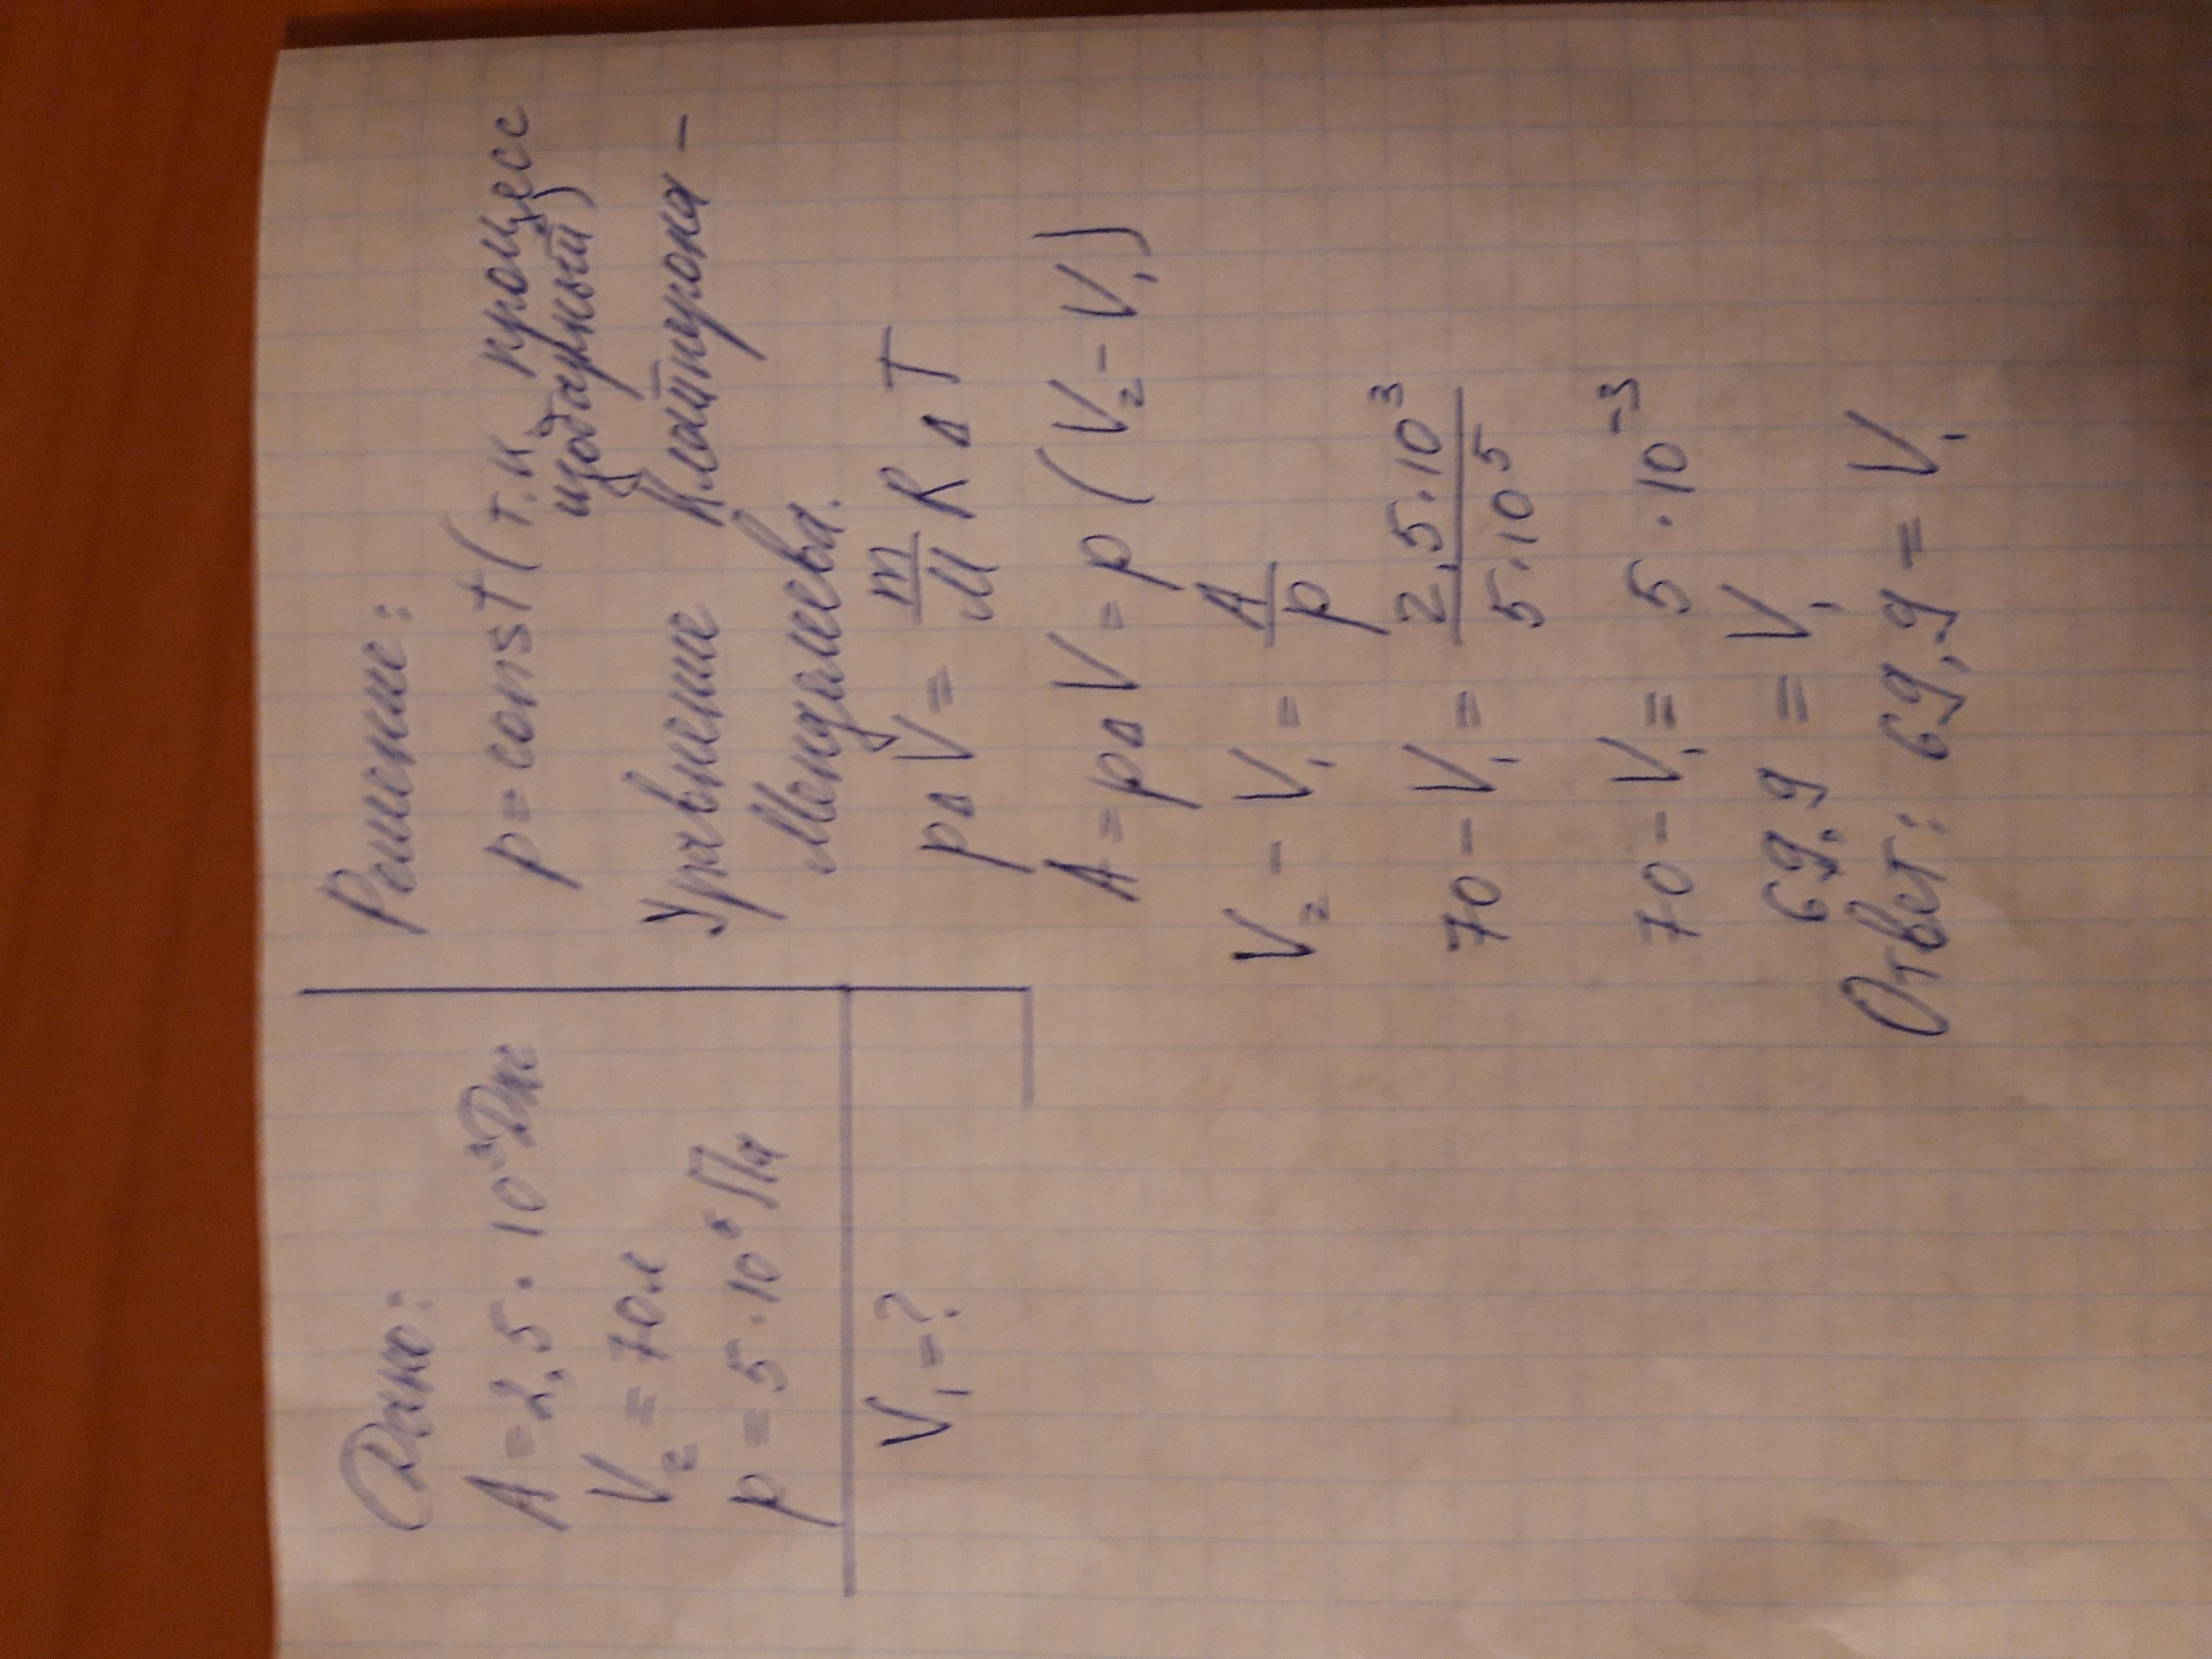 Дано:
A = 2,5 · 10³ Дж
V₂ = 70 л
p = 5 · 10⁵ Па
V₁ = ?
Решение:
p = const (т.к. процесс
изобарный)
Уравнение Клайперона –
Менделеева.
p△V = m/M R△T
A = p△V = p(V₂ – V₁)
V₂ – V₁ = A/p
70 – V₁ = 2,5·10³/5·10⁵
70 – V₁ = 5 · 10⁻³
69,9 = V₁
Ответ: 69,9 = V₁